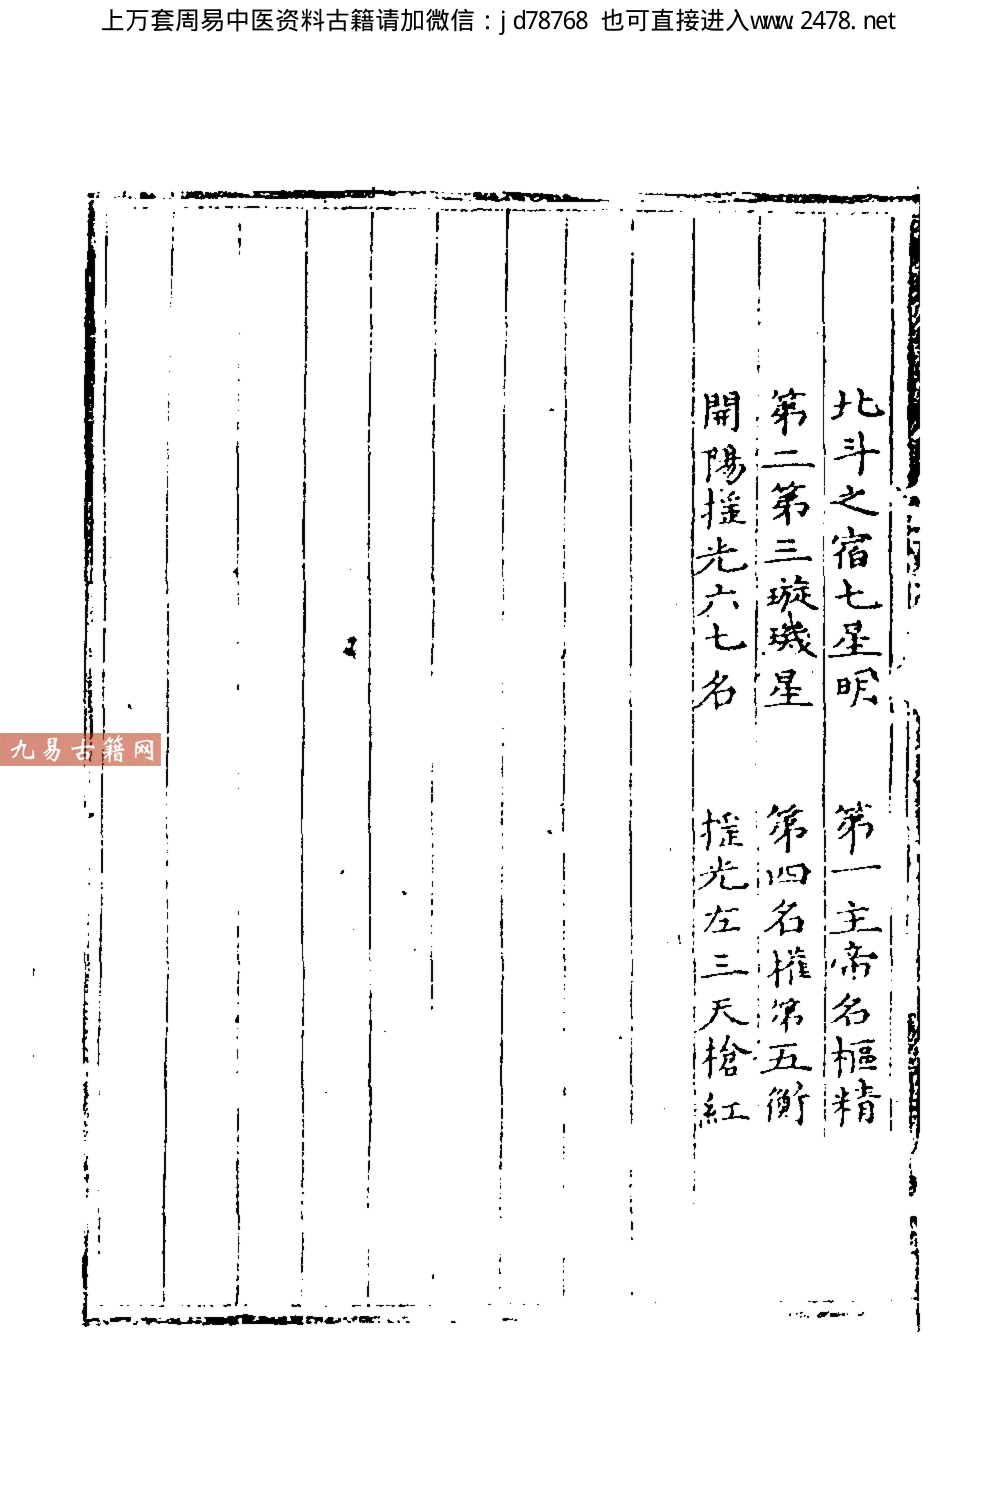 上万套周易中医资料古籍请加微信：jd78768 也可直接进入www.2478.net
北斗之宿七星明　第一主帝名樞精
第二第三璇璣星　第四名權第五衡
開陽摇光六七名　摇光左三天槍紅
九易古籍网